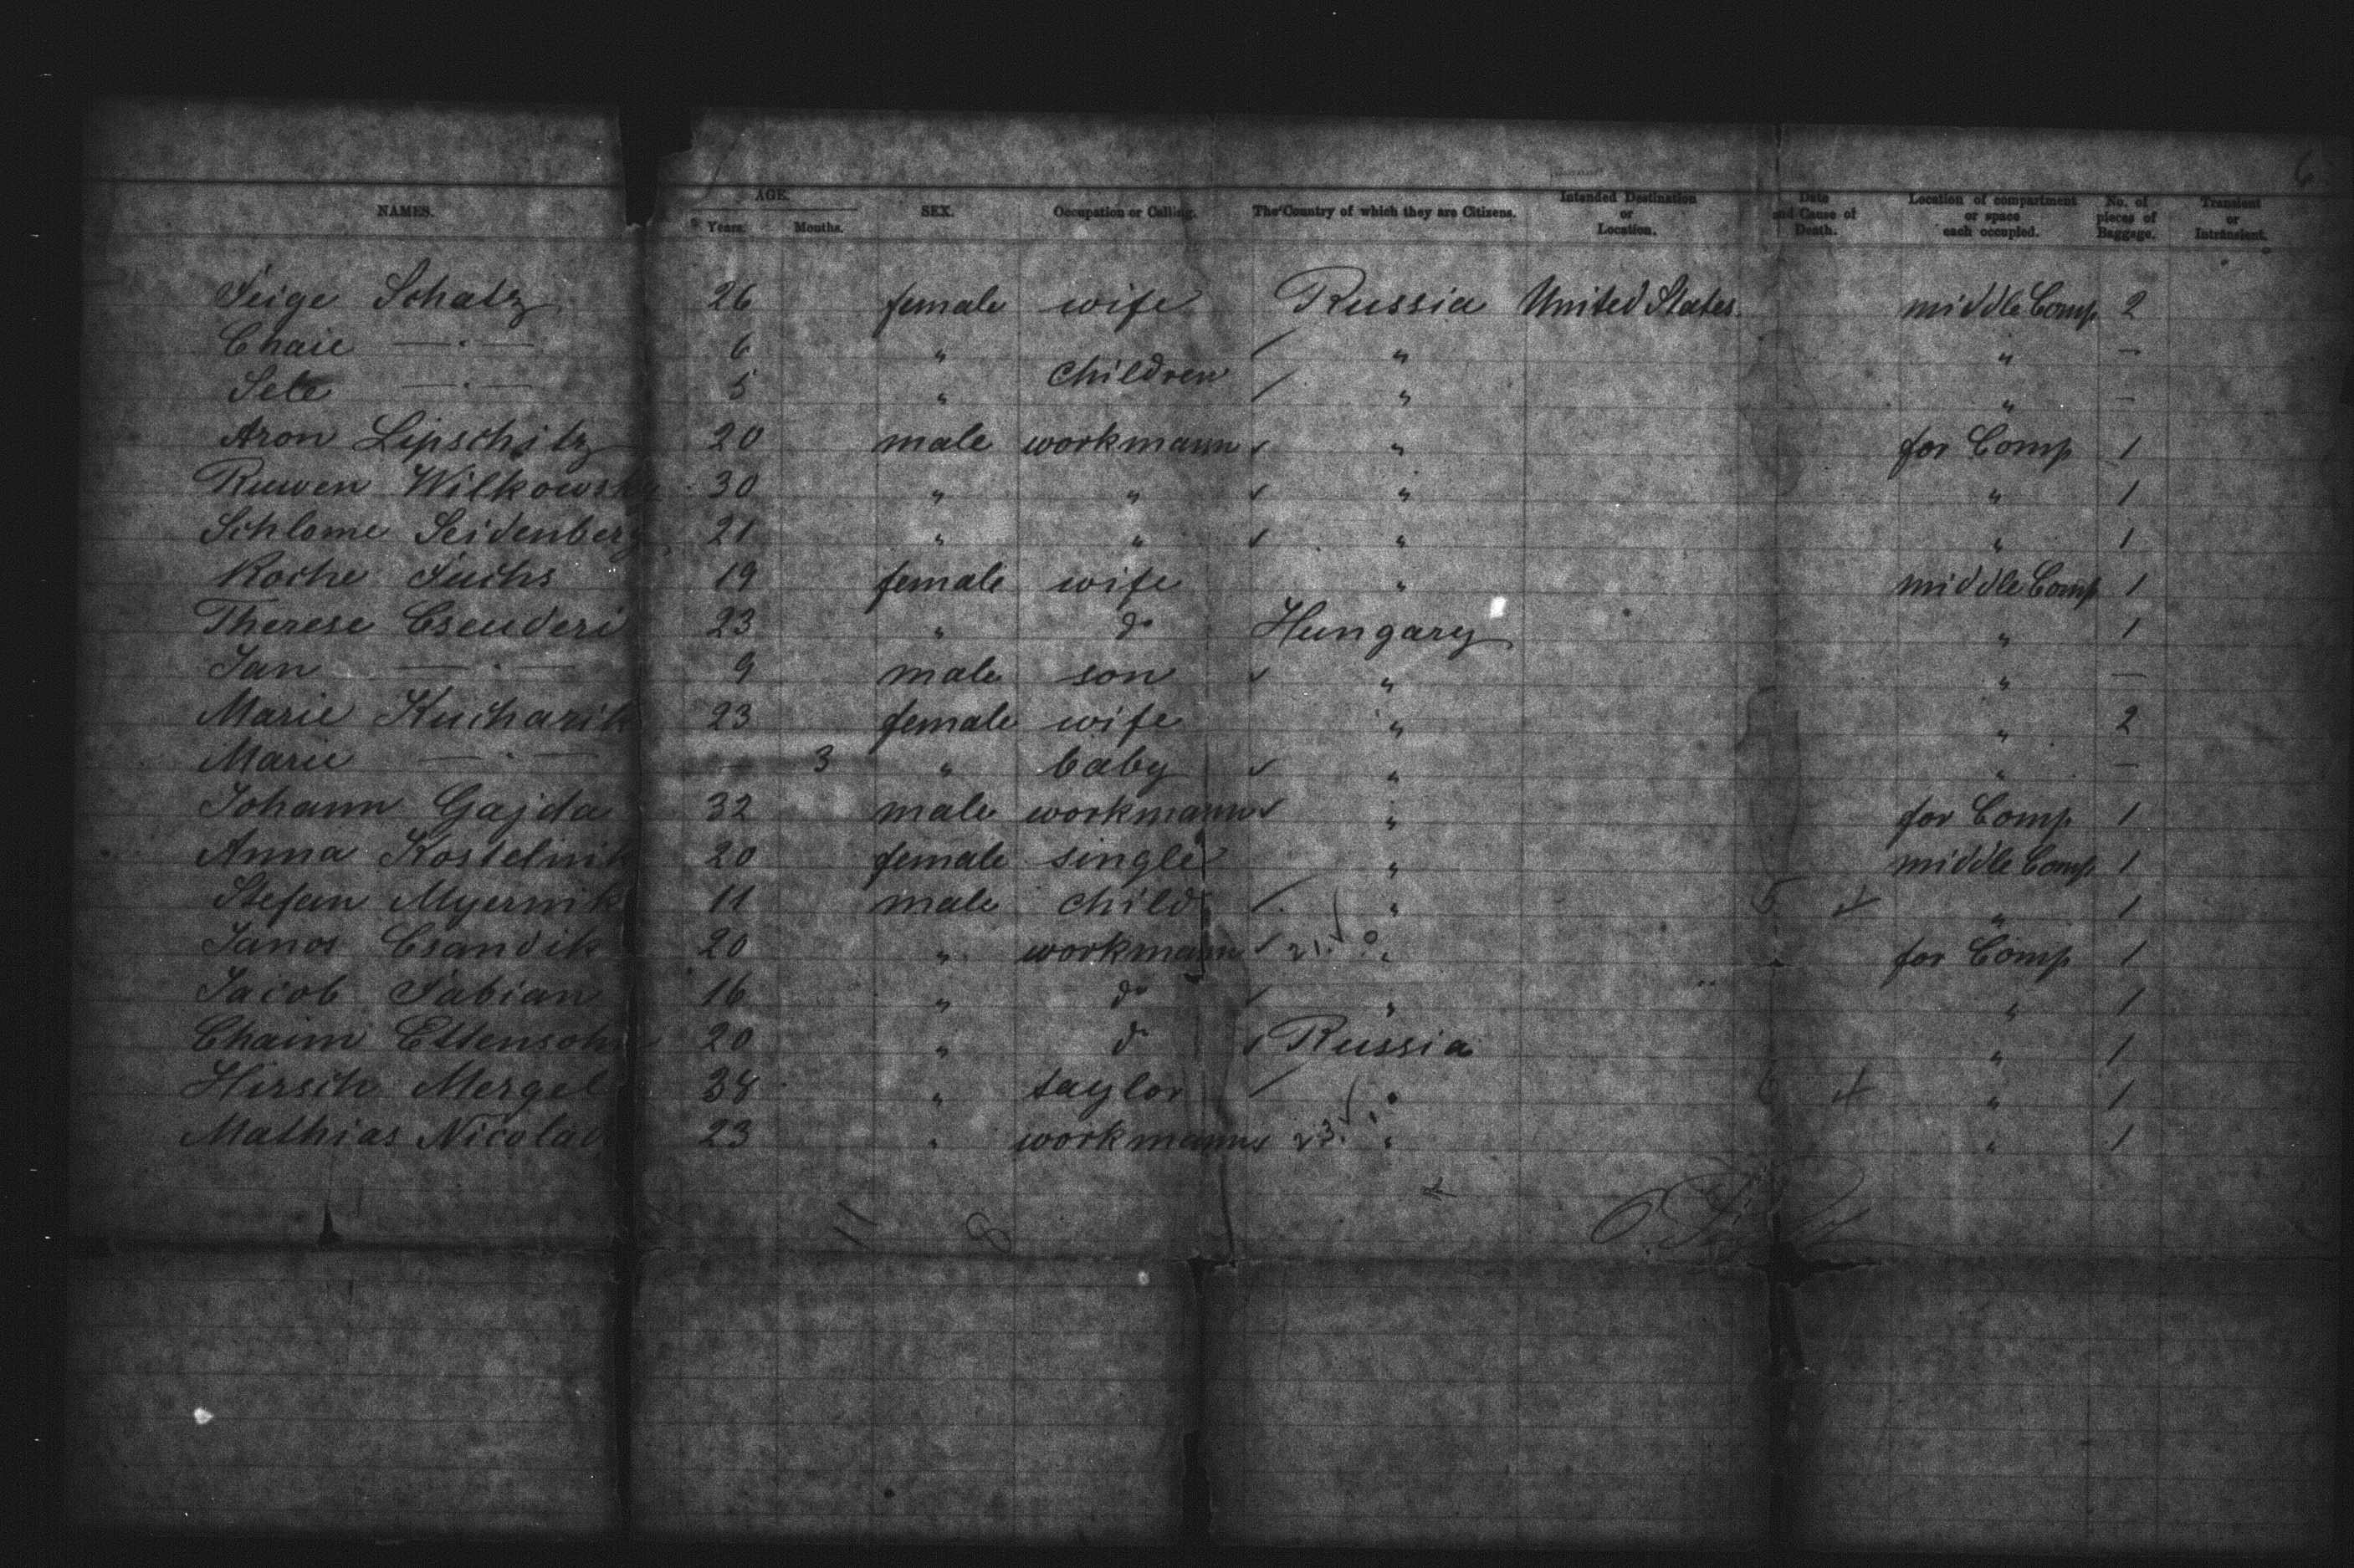 6
NAMES. AGE. Years. Months. SEX. Occupation or Calling. The Country of which they are Citizens. Intended Destination or Location. Date and Cause of Death. Location of compartment or space each occupied. No. of pieces of Baggage. Transient or Intransient.
Feige Schatz 26 female wife Russia United States. middle Comp 2
Chaie — · — 6 " children " " —
Sele — · — 5 " " " —
Aron Lipschitz 20 male workmann " for Comp 1
Ruwen Wilkowsky 30 " " " " 1
Schlome Seidenberg 21 " " " " 1
Roche Fuchs 19 female wife " middle Comp 1
Therese Csenderi 23 " do Hungary " 1
Jan — · — 9 male son " " —
Marie Kucharik 23 female wife " " 2
Marie — · — 3 " baby " " —
Johann Gajda 32 male workmann " for Comp 1
Anna Kostelnik 20 female single " middle Comp 1
Stefan Myernik 11 male child " 5 " 1
Janos Csandik 20 " workmann 21. " for Comp 1
Jacob Fabian 16 " do " " 1
Chaim Ettensohn 20 " do Russia " 1
Hirsch Mergel 38 " taylor " 6 " 1
Mathias Nicolaus 23 " workmann 23. " " 1
11 8